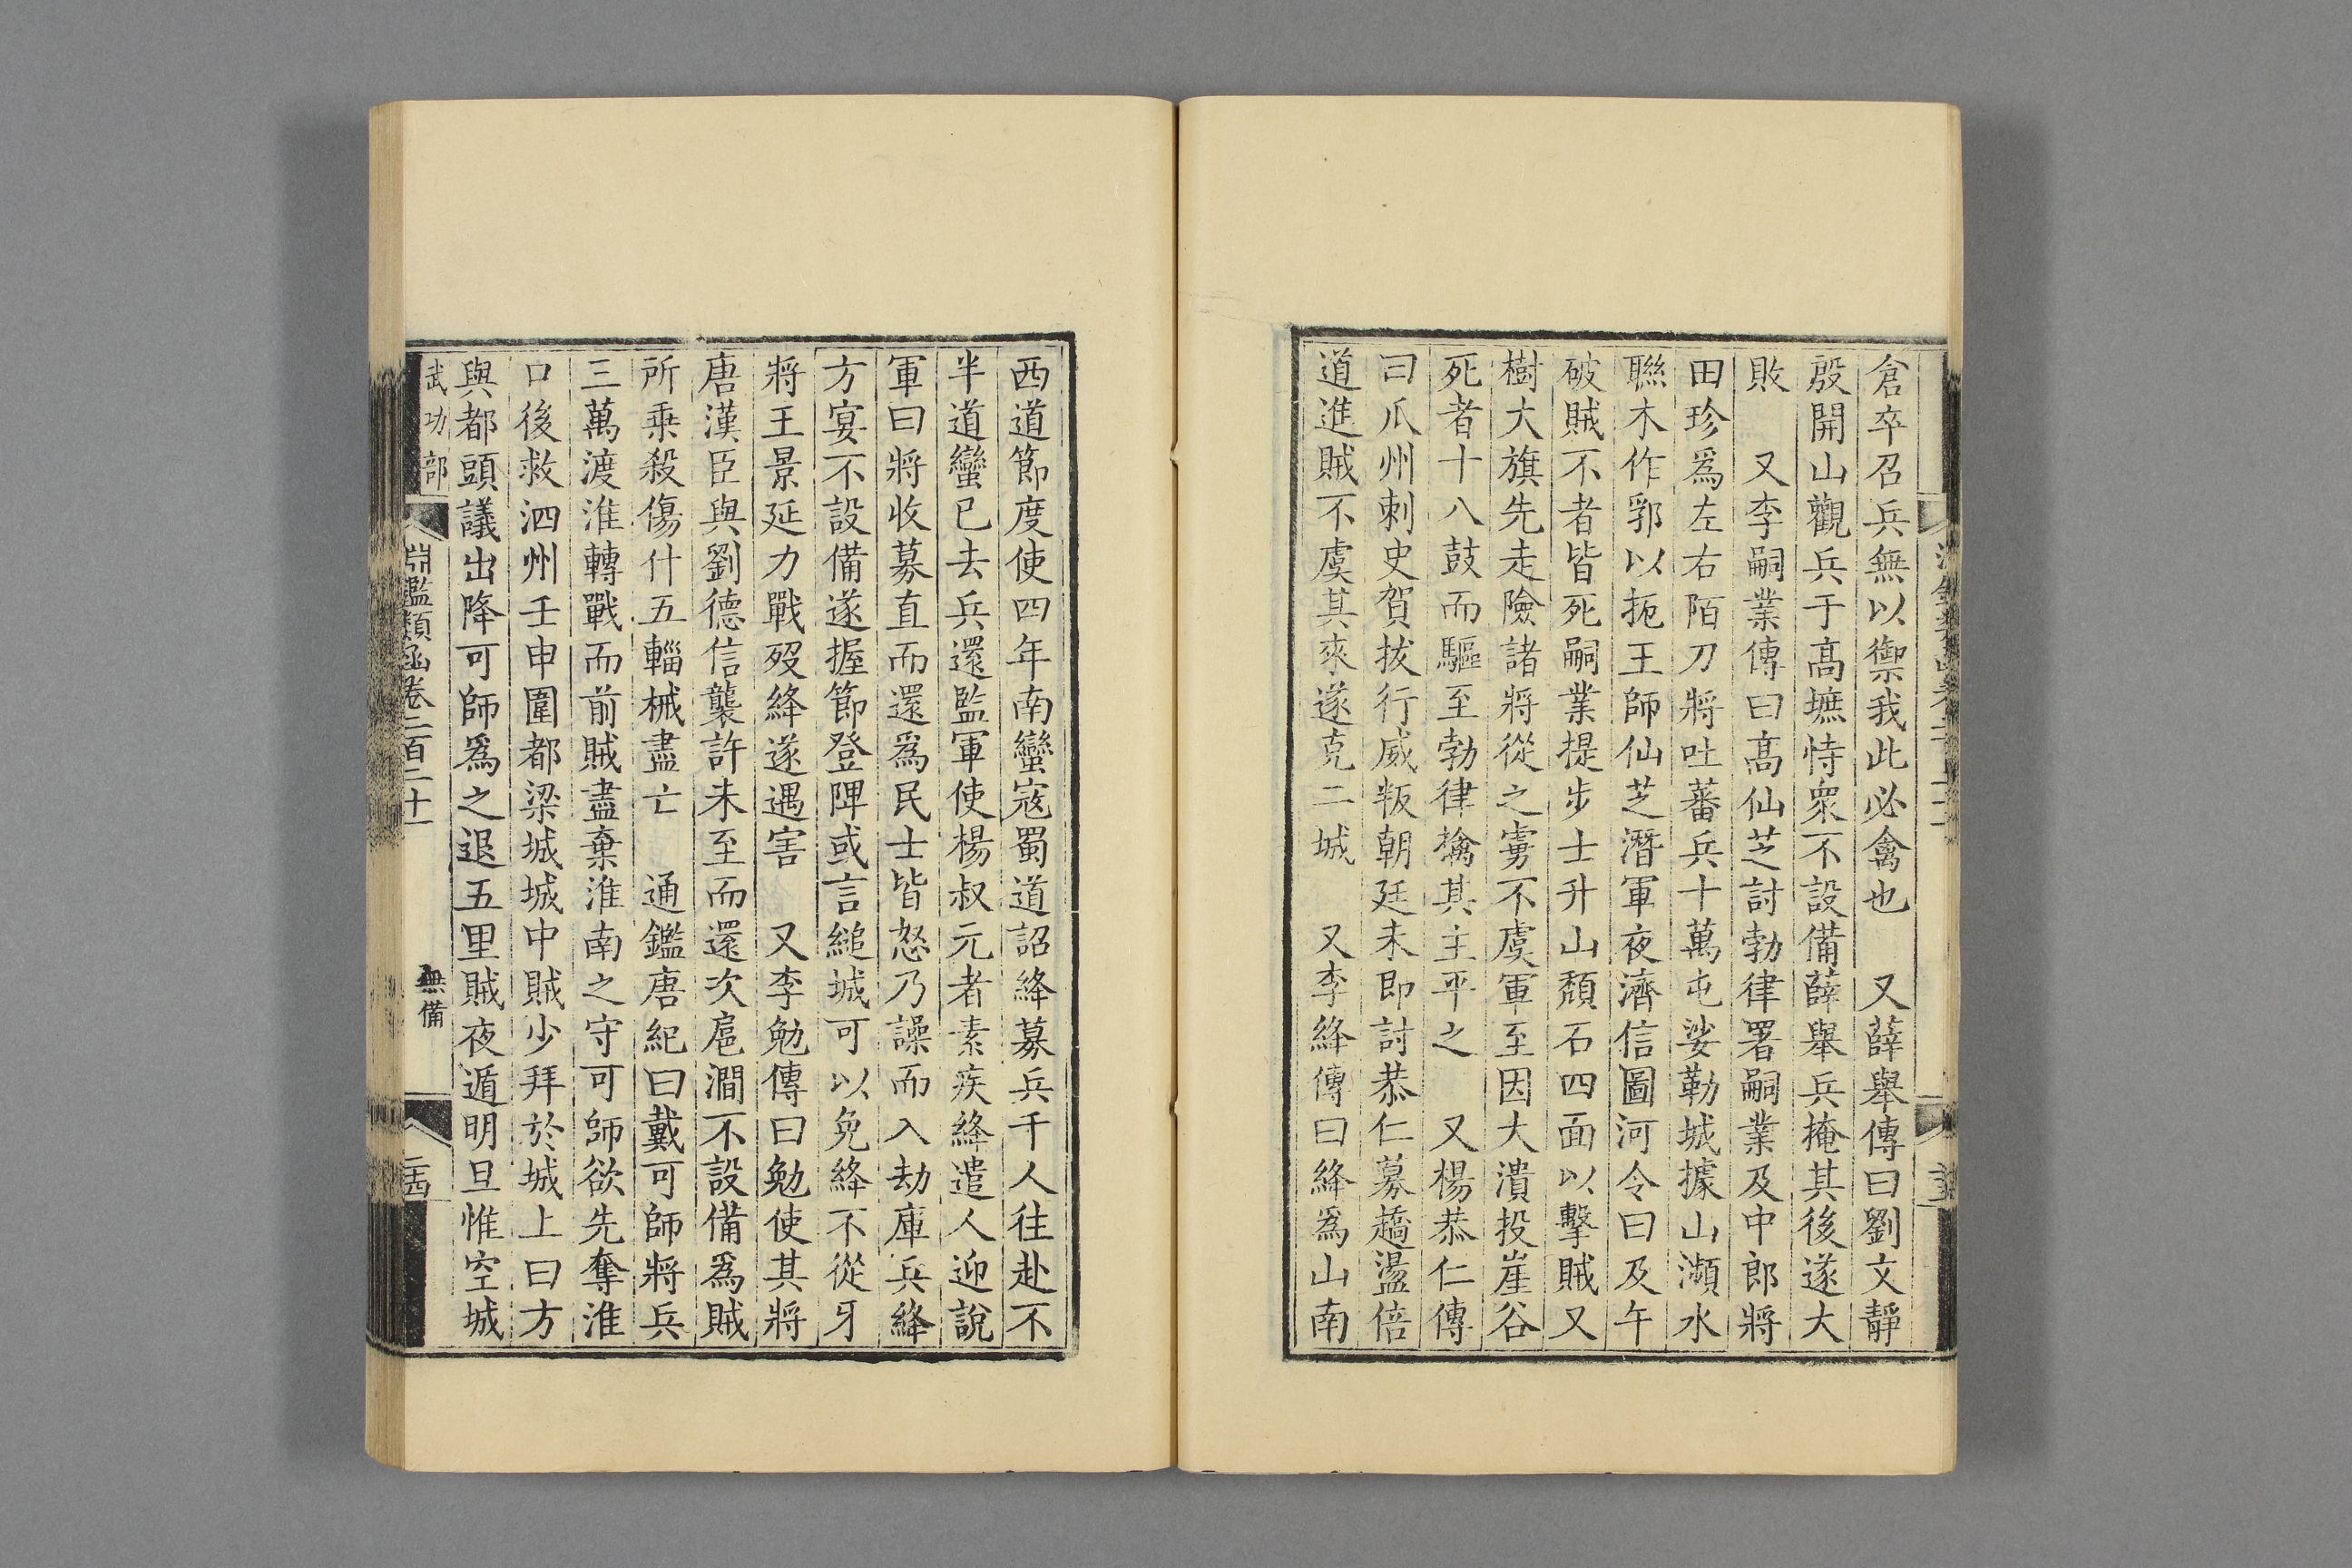 倉卒召兵無以禦我此必禽也　又薛舉傳曰劉文靜
殷開山觀兵于高墌恃衆不設備薛舉兵掩其後遂大
敗　又李嗣業傳曰高仙芝討勃律署嗣業及中郎將
田珍爲左右陌刀將吐蕃兵十萬屯娑勒城據山瀕水
聯木作郛以扼王師仙芝潛軍夜濟信圖河令曰及午
破賊不者皆死嗣業提步士升山頹石四面以擊賊又
樹大旗先走險諸將從之虜不虞軍至因大潰投崖谷
死者十八鼓而驅至勃律擒其主平之　又楊恭仁傳
曰瓜州刺史賀拔行威叛朝廷未即討恭仁募趫盪倍
道進賊不虞其來遂克二城　又李絳傳曰絳爲山南
西道節度使四年南蠻寇蜀道詔絳募兵千人往赴不
半道蠻已去兵還監軍使楊叔元者素疾絳遣人迎說
軍曰將收募直而還爲民士皆怒乃譟而入劫庫兵絳
方宴不設備遂握節登陴或言縋城可以免絳不從牙
將王景延力戰歿絳遂遇害　又李勉傳曰勉使其將
唐漢臣與劉德信襲許未至而還次扈澗不設備爲賊
所乗殺傷什五輜械盡亡　通鑑唐紀曰戴可師將兵
三萬渡淮轉戰而前賊盡棄淮南之守可師欲先奪淮
口後救泗州壬申圍都梁城城中賊少拜於城上曰方
與都頭議出降可師爲之退五里賊夜遁明旦惟空城
武功部
淵鑑類函卷二百二十
無備